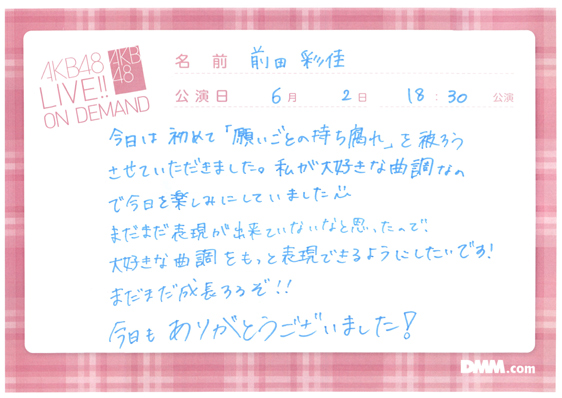 AKB48
LIVE!!
ON DEMAND
AKB
48
名 前 前田 彩佳
公演日 6月 2日 18:30 公演
今日は初めて「願いごとの持ち腐れ」を披ろう
させていただきました。私が大好きな曲調なの
で今日を楽しみにしていました
まだまだ表現が出来ていないなと思ったので、
大好きな曲調をもっと表現できるようにしたいです!
まだまだ成長するぞ!!
今日もありがとうございました!
DMM.com